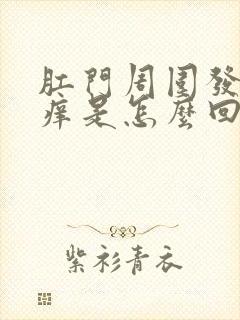 肛門周圍發
痒是怎麼回
紫衫青衣